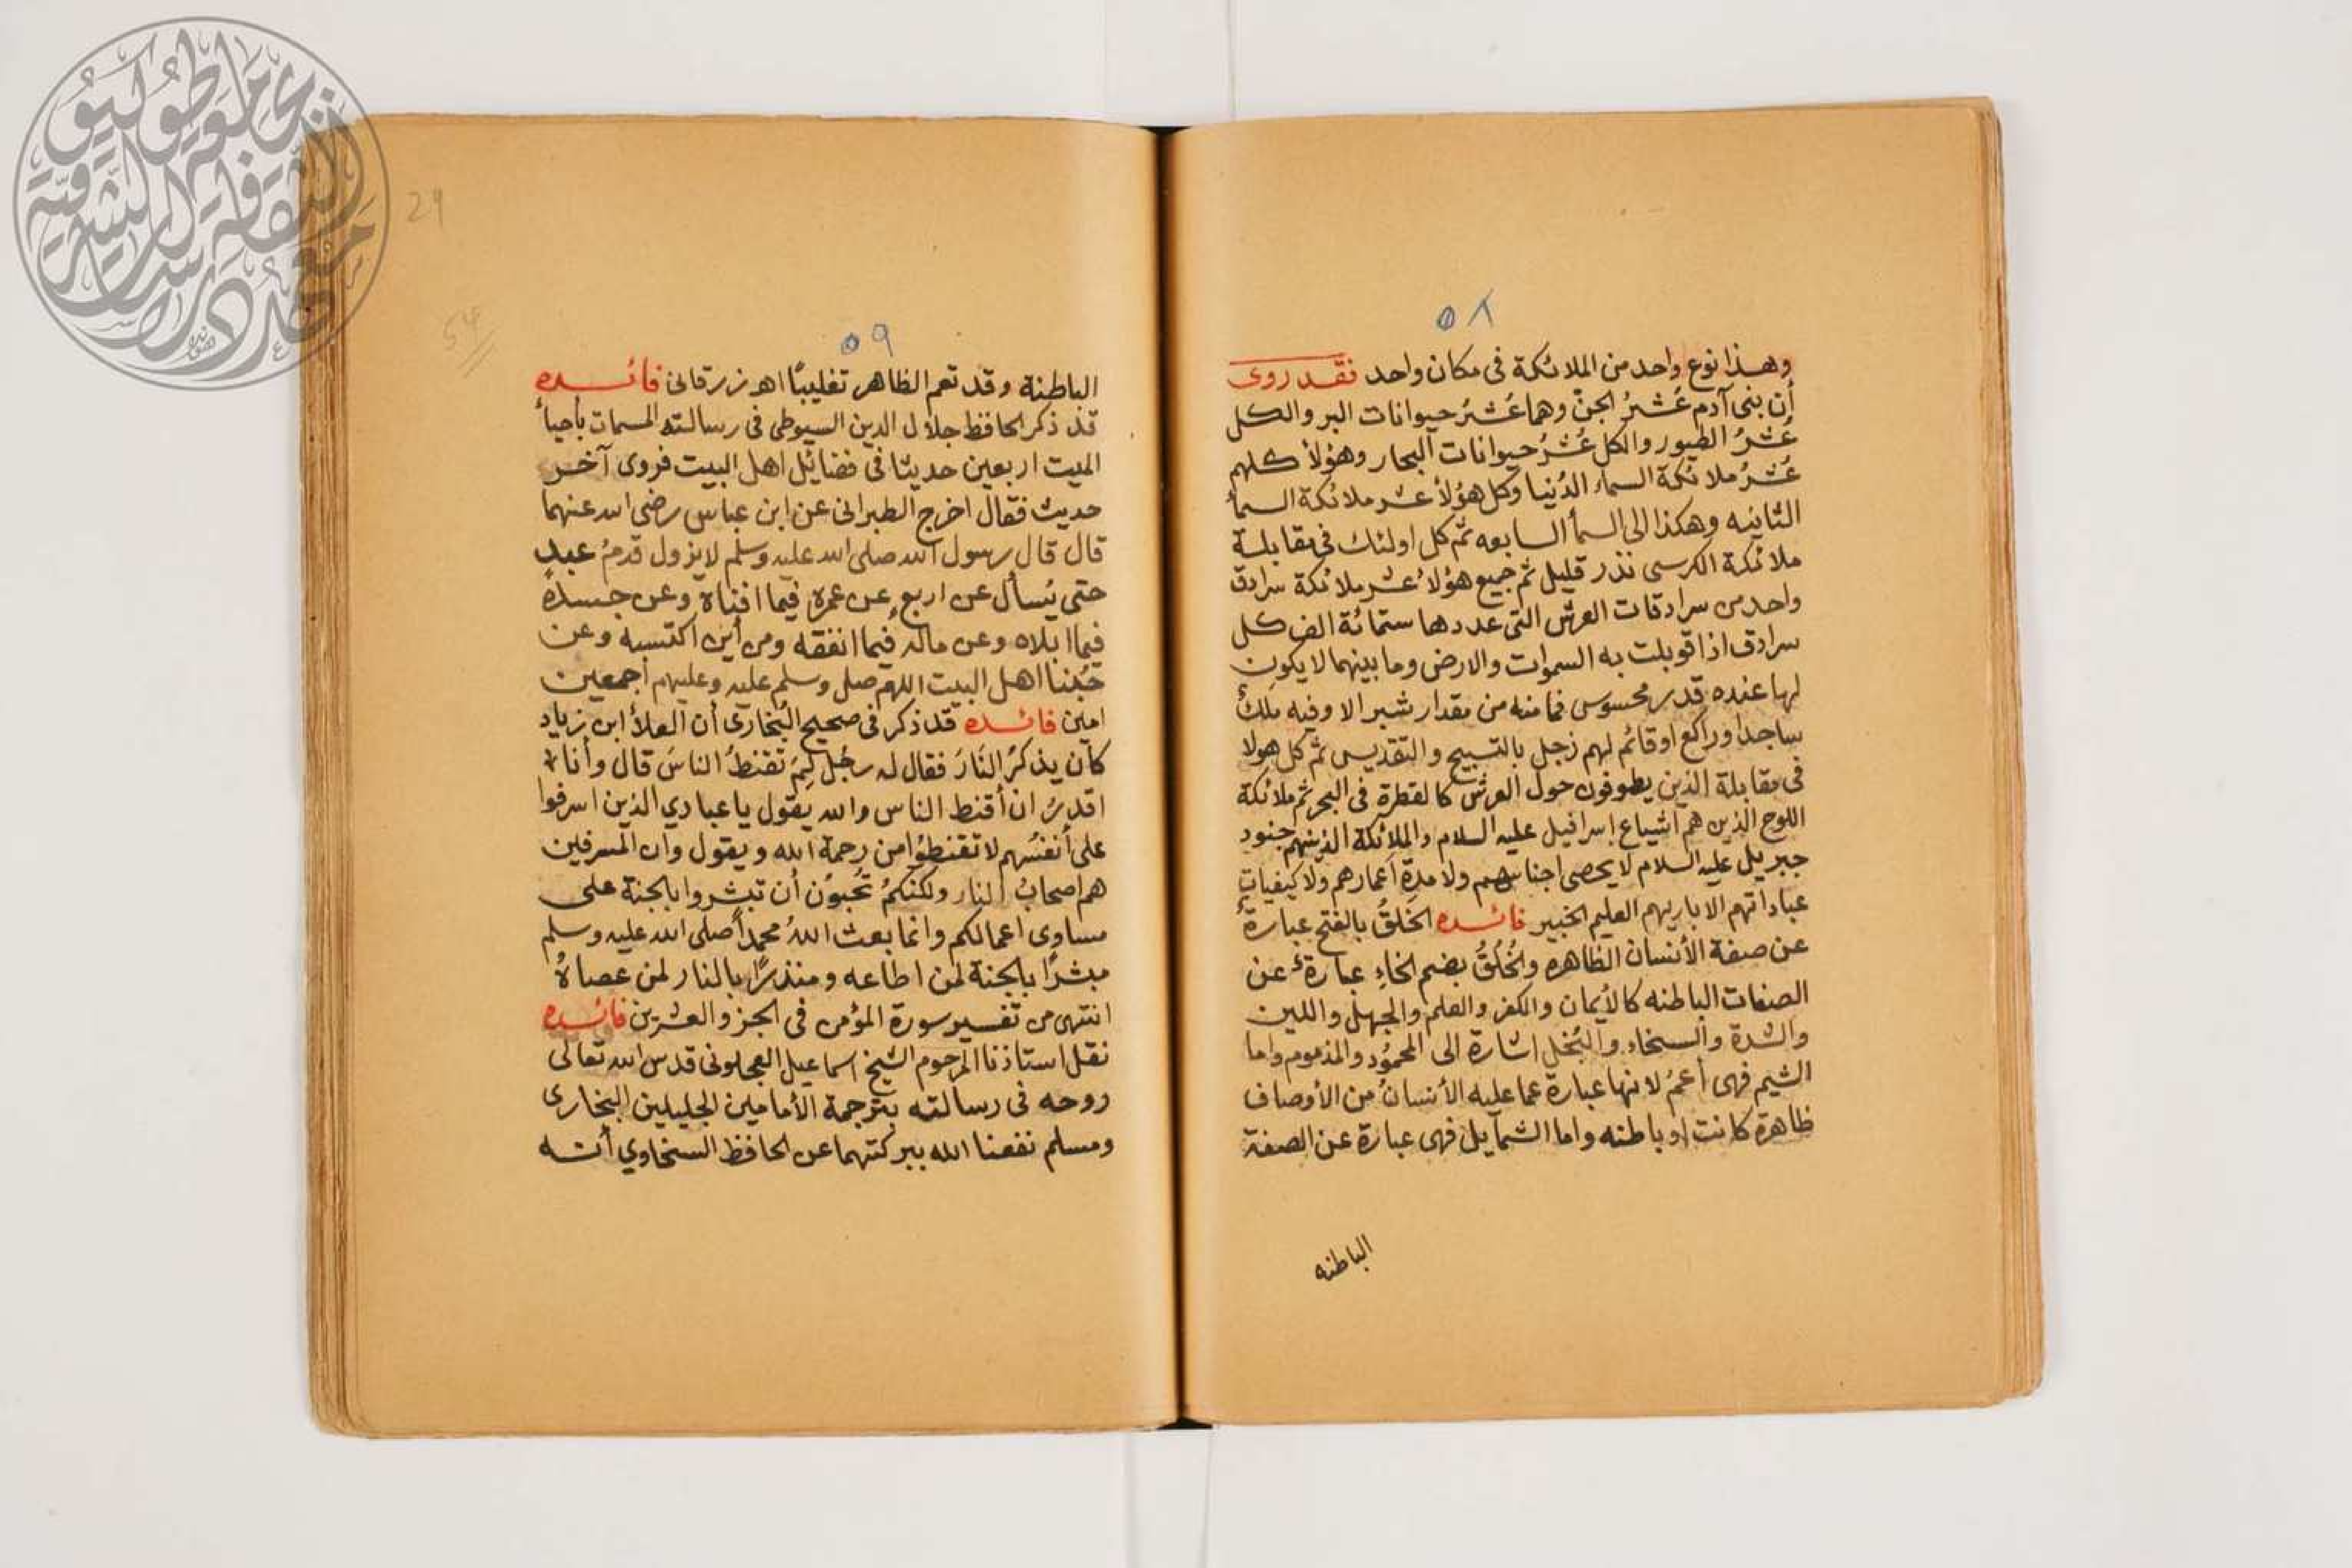 ٥٨
وهذا نوع واحد من الملائكة في مكان واحد نقد روى
أن بني آدم عُشرُ الجنّ وهما عُشرُ حيوانات البر والكل
عُشرُ الطيور والكل عُشرُ حيوانات البحار وهؤلاء كلهم
عُشرُ ملائكة السماء الدُنيا وكل هؤلاء عشر ملائكة السمأ
الثانيه وهكذا الى السمأ السابعه ثم كل اولئك في مقابلة
ملائكة الكرسي نذر قليل ثم جميع هؤلاء عشر ملائكة سرادق
واحد من سرادقات العرش التي عددها ستمائة الف كل
سرادق اذا قوبلت به السموات والارض وما بينهما لا يكون
لها عنده قدر محسوس فما منه من مقدار شبر الا وفيه ملك
ساجد او راكع او قائم لهم زجل بالتسبيح والتقديس ثم كل هولا
في مقابلة الذين يطوفون حول العرش كالقطرة في البحر ثم ملائكة
اللوح الذين هم اشياع إسرافيل عليه السلام والملائكة الذينهم جنود
جبريل عليه السلام لا يحصى اجناسهم ولا مدة أعمارهم ولا كيفيات
عباداتهم الا باريهم العليم الخبير فائده الخَلقُ بالفتح عبارة
عن صفة الأنسان الظاهره والخُلُقُ بضم الخاءِ عبارة عن
الصفات الباطنه كالأيمان والكفر والعلم والجهل واللين
والشدة والسخاء والبُخل اشارة الى المحمُود والمذموم واما
الشيم فهى أعمُ لانها عبارة عما عليه الأنسانُ من الأوصاف
ظاهرة كانت او باطنه واما الشمآيل فهى عبارة عن الصفة
الباطنه
29
54
٥٩
الباطنة وقد تعم الظاهر تغليبًا اهـ زرقانى فائده
قد ذكر الحافظ جلال الدين السيوطى فى رسالته المسمات بأحيأ
الميت اربعين حديثا فى فضائل اهل البيت فروى آخر
حديث فقال اخرج الطبرانى عن ابن عباس رضى الله عنهما
قال قال رسول الله صلى الله عليه وسلم لا يزول قدمُ عبد
حتى يُسأل عن اربعٍ عن عمرهِ فيما افناهُ وعن جسدهِ
فيما ابلاه وعن ماله فيما انفقه ومن أين اكتسبه وعن
حُبنا اهل البيت اللهم صل وسلم عليه وعليهم أجمعين
امين فائده قد ذكر فى صحيح البُخارى أن العلأ ابن زياد
كان يذكرُ النارَ فقال له رجُل لِمَ تقنطُ الناسَ قال وأنا
اقدرُ ان أقنط الناس والله يقول يا عبادي الذين اسرفوا
على أنفسُهم لا تقنطوُا من رحمة الله ويقول وان المسرفين
هم اصحابُ النار ولكنكمُ تُحبوُن أن تبشروا بالجنة على
مساوى اعمالكم وانما بعث اللهُ محمداً صلى الله عليه وسلم
مبشرًا بالجنة لمن اطاعه ومنذرًا بالنار لمن عصاهُ
انتهى من تفسير سورة المؤمن فى الجز والعشرين فائده
نقل استاذنا المرحوم الشيخ اسماعيل العجلونى قدس الله تعالى
روحه فى رسالته بترجمة الأمامين الجليلين البخارى
ومسلم نفعنا الله ببركتهما عن الحافظ السخاوي أنه